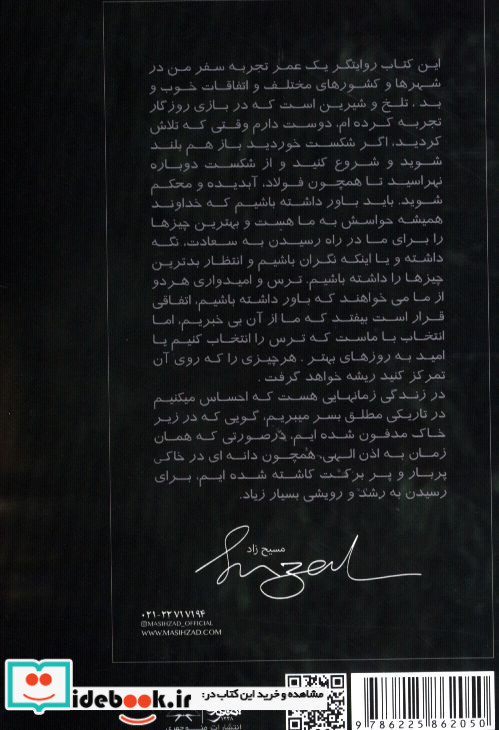 این کتاب روایتگر یک عمر تجربه سفر من در
شهرها و کشورهای مختلف و اتفاقات خوب و
بد ، تلخ و شیرین است که در بازی روزگار
تجربه کرده ام. دوست دارم وقتی که تلاش
کردید، اگر شکست خوردید باز هم بلند
شوید و شروع کنید و از شکست دوباره
نهراسید تا همچون فولاد، آبدیده و محکم
شوید. باید باور داشته باشیم که خداوند
همیشه حواسش به ما هست و بهترین چیزها
را برای ما در راه رسیدن به سعادت، نگه
داشته و یا اینکه نگران باشیم و انتظار بدترین
چیزها را داشته باشیم. ترس و امیدواری هر دو
از ما می خواهند که باور داشته باشیم، اتفاقی
قرار است بیفتد که ما از آن بی خبریم، اما
انتخاب با ماست که ترس را انتخاب کنیم یا
امید به روزهای بهتر . هرچیزی را که روی آن
تمرکز کنید ریشه خواهد گرفت .
در زندگی زمانهایی هست که احساس میکنیم
در تاریکی مطلق بسر میبریم، گویی که در زیر
خاک مدفون شده ایم، درصورتی که همان
زمان به اذن الهی، همچون دانه ای در خاکی
پربار و پر برکت کاشته شده ایم، برای
رسیدن به رشد و رویشی بسیار زیاد.
مسیح زاد
۰۲۱-۲۲۷۱۷۱۹۴
@MASIHZAD_OFFICIAL
WWW.MASIHZAD.COM
مشاهده و خرید این کتاب در:
idebook.ir
انتشارات منوچهری
9 786225 862050